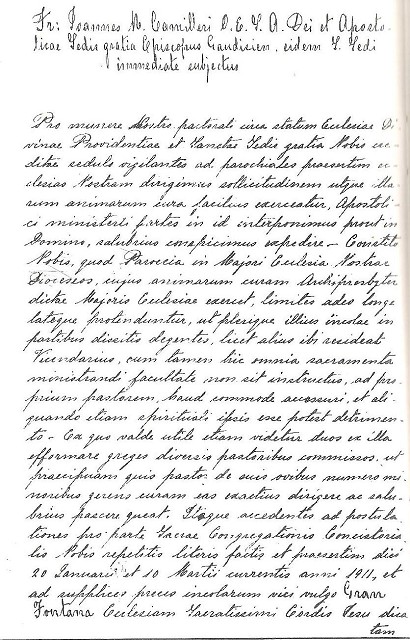 Fr: Ioannes M. Camilleri O. E. S. A. Dei et Aposto-
licae Sedis gratia Episcopus Gaudisien. eidem S. Sedi
immediate subjectus
Pro munere Nostro pastorali circa statum Ecclesiae Di
vinae Providentiae et Sanctae Sedis gratia Nobis cre
ditae sedulo vigilantes ad parochiales praesertim ec
clesias Nostram dirigimus sollicitudinem utque illa
rum animarum cura facilius exerceatur, Apostoli
ci ministerii partes in id interponimus prout in
Domino, salubrius conspicimus expedire - Constito
Nobis, quod Paroecia in Majori Ecclesia Nostrae
Dioceseos, cujus animarum curam Archipresbyter
dictae Majoris Ecclesiae exercet, limites adeo longe
lateque protenduntur, ut plerique illius incolae in
partibus dissitis degentes, licet alius ibi resideat
Vicendarius, cum tamen hic omnia sacramenta
ministrandi facultate non sit instructus, ad pro
prium pastorem, haud commode accessuri, et ali
quando etiam spirituali ipsis esse potest detrimen
to - Ex quo valde utile etiam videtur duos ex illa
efformare greges diversis pastoribus commissos, ut
praecipuam quis pastor de suis ovibus numero mi
noribus gerens curam eas exactius dirigere ac salu-
brius pascere queat. Itaque accedentes ad postula
tiones pro parte Sacrae Congregationis Concistoria
lis Nobis repetitis literis factis et praesertim diei
20 Januarii et 10 Martii currentis anni 1911, et
ad supplices preces incolarum vici vulgo Gran
Fontana Ecclesiam Sacratissimi Cordis Jesu dica
tam